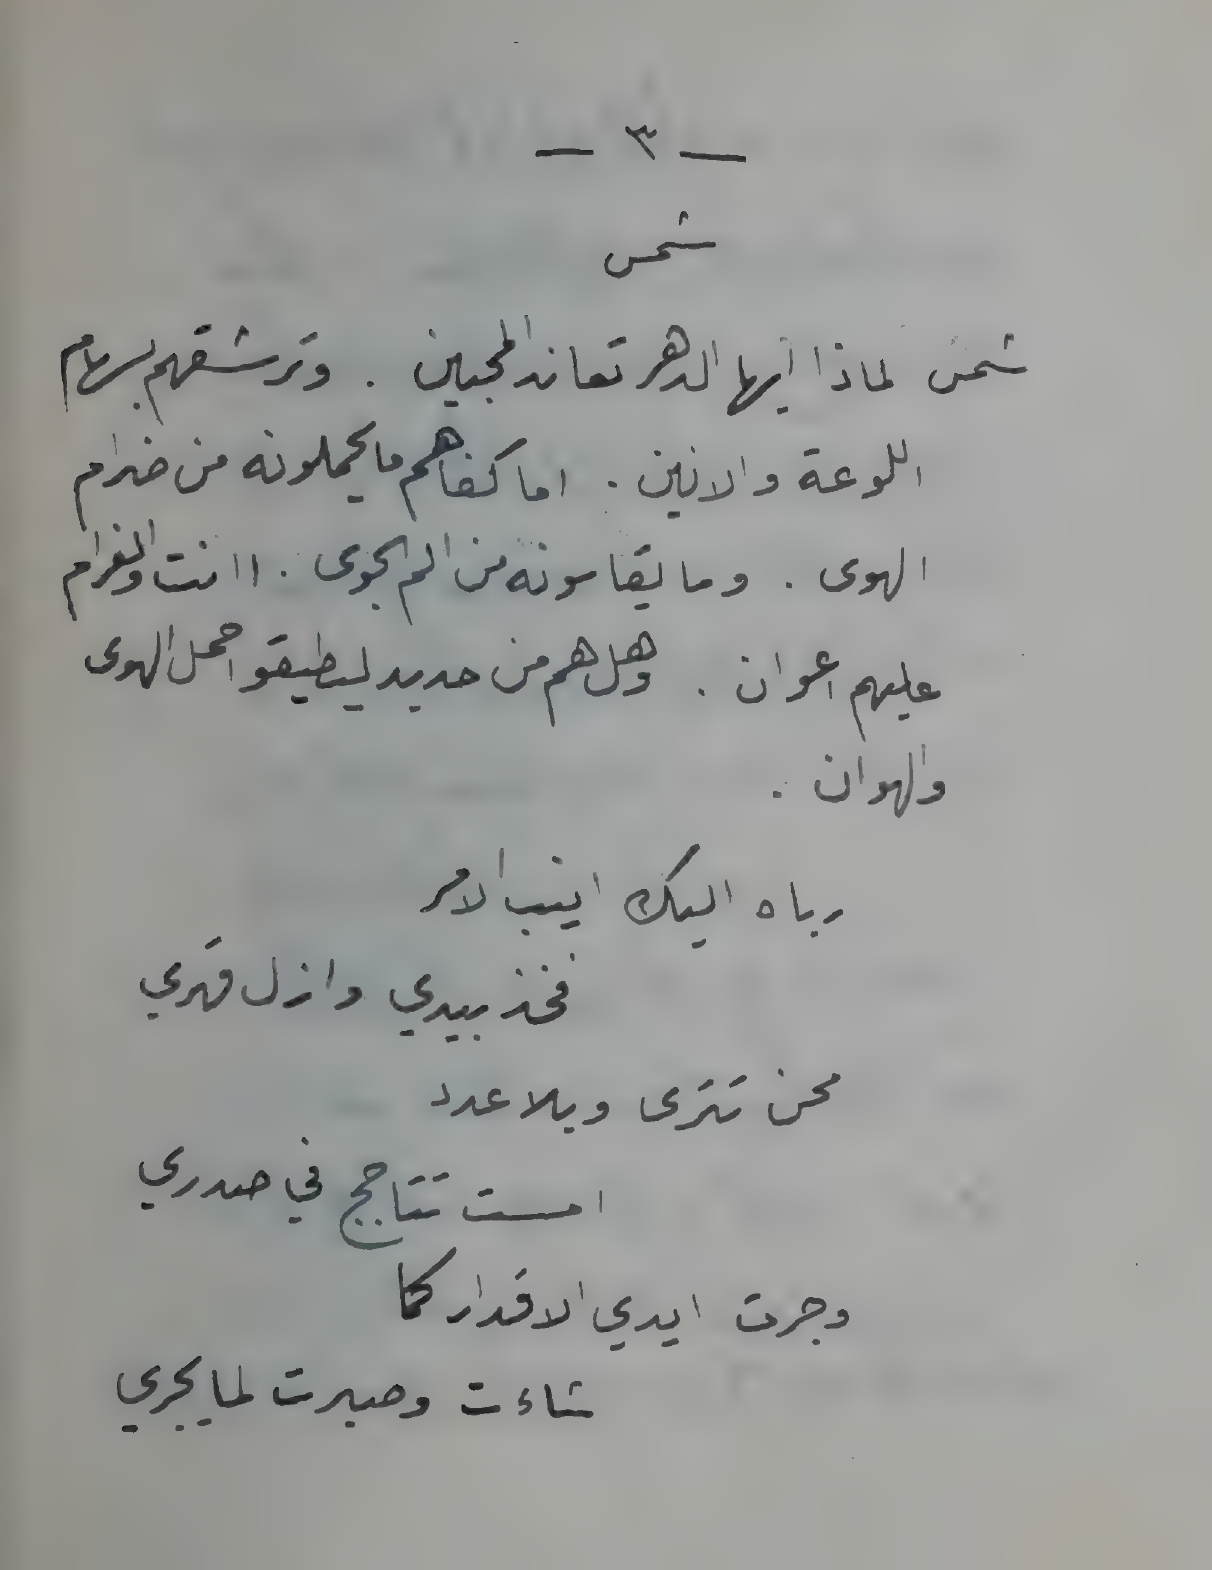 — ٣ —
شمس
شمس لماذا ايها الدهر تعاند المحبين . وترشقهم بسهام
اللوعة والانين . اما كفاهم ما يحملونه من ضرام
الهوى . وما يقاسونه من الم الجوى . اانت والغرام
عليهم اعوان . وهل هم من حديد ليطيقوا حمل الهوى
والهوان .
رباه اليك انيب الامر
فخذ بيدي وازل قهري
محن تترى وبلا عدد
امست تتاجج في صدري
وجرت ايدي الاقدار كما
شاءت وصبرت لما يجري